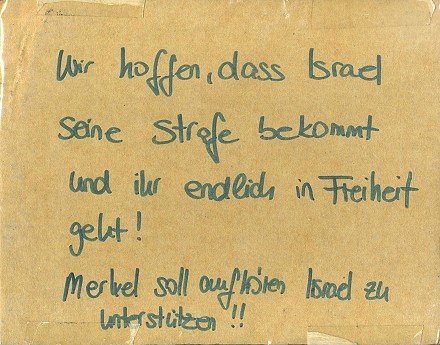 Wir hoffen, dass Israel
seine Strafe bekommt
und ihr endlich in Freiheit
geht!
Merkel soll aufhören Israel zu
unterstützen!!